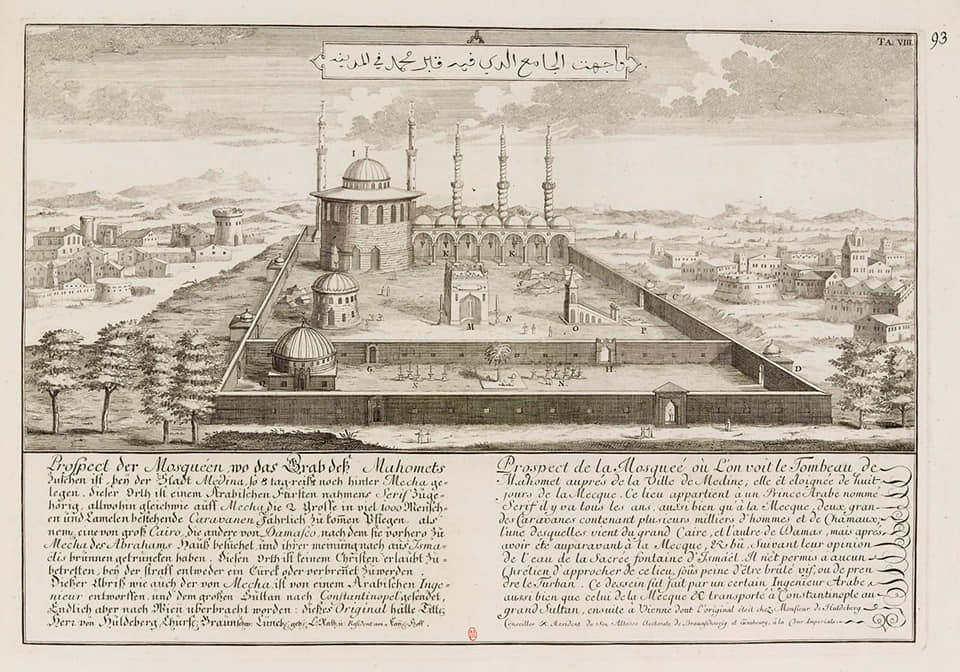 TA: VIII.
93
واجهت الجامع الدي فيه قبر محمد في المدينه
I
K K
M N O P
G H D
N N
Prospect der Mosquéen, wo das Grab deß Mahomets
zu sehen ist, beÿ der Stadt Medina, so 8 tag reiße noch hinter Mecha ge-
legen. dieser Orth ist einem Arabischen Fürsten nahmens Serif zuge-
hörig, allwohin gleichwie auff Mecha die 2 Große in viel 1000 Mensch-
en und Camelen bestehende Caravanen Jährlich zu kom̄en Pflegen. als
neml. eine von groß Cairo, die andere von Damasco, nach dem sie vorhero zu
Mecha des Abrahams Hauß besuchet, und ihrer meinung nach aus Isma-
elis brünnen getruncken haben. Diesen Orth ist keinem Christen erlaubt zu
betretten, beÿ der straff entweder ein Türck oder verbrent zu werden
Dießer Abriß wie auch der von Mecha ist von einem Arabischen Inge-
nieur entworffen, und dem großen Sultan nach Constantinopel gesendet,
Endlich aber nach Wien uberbracht worden: dieses Original hatte Titl:
Herr von Huldeberg, Churfst: Braunschw: Luneb:
Prospect de la Mosqueé où L'on voit le Tombeau de
Mahomet auprés de la Ville de Medine; elle ét éloignée de huit
jours de la Mecque. Ce lieu appartient à un Prince Arabe nommé
Serif il y va tous les ans, aussi bien qu'à la Mecque, deux gran-
des Caravanes contenant plusieurs milliers d'hommes et de Chamaux;
l'une desquelles vient du grand Caire, et l'autre de Damas, mais aprés
avoir été auparavant à la Mecque, & bû, Suivant leur opinion
de l'eau de la Sacreé fontaine d'Ismaël. Il n'ét permis a aucun
Chrétien d'approcher de ce lieu, sous peine d'être brûlé vif, ou de pren-
dre le Turban. Ce dessein fut fait par un certain Ingenieur Arabe,
aussi bien que celui de la Mecque & transporté à Constantinople au
grand Sultan, ensuite à Vienne dont l'original étoit chez Monsieur de Huldeberg
Conseiller & Resident de Son Altesse Electorale de Braunschweig et Lunebourg, à la Cour Imperiale